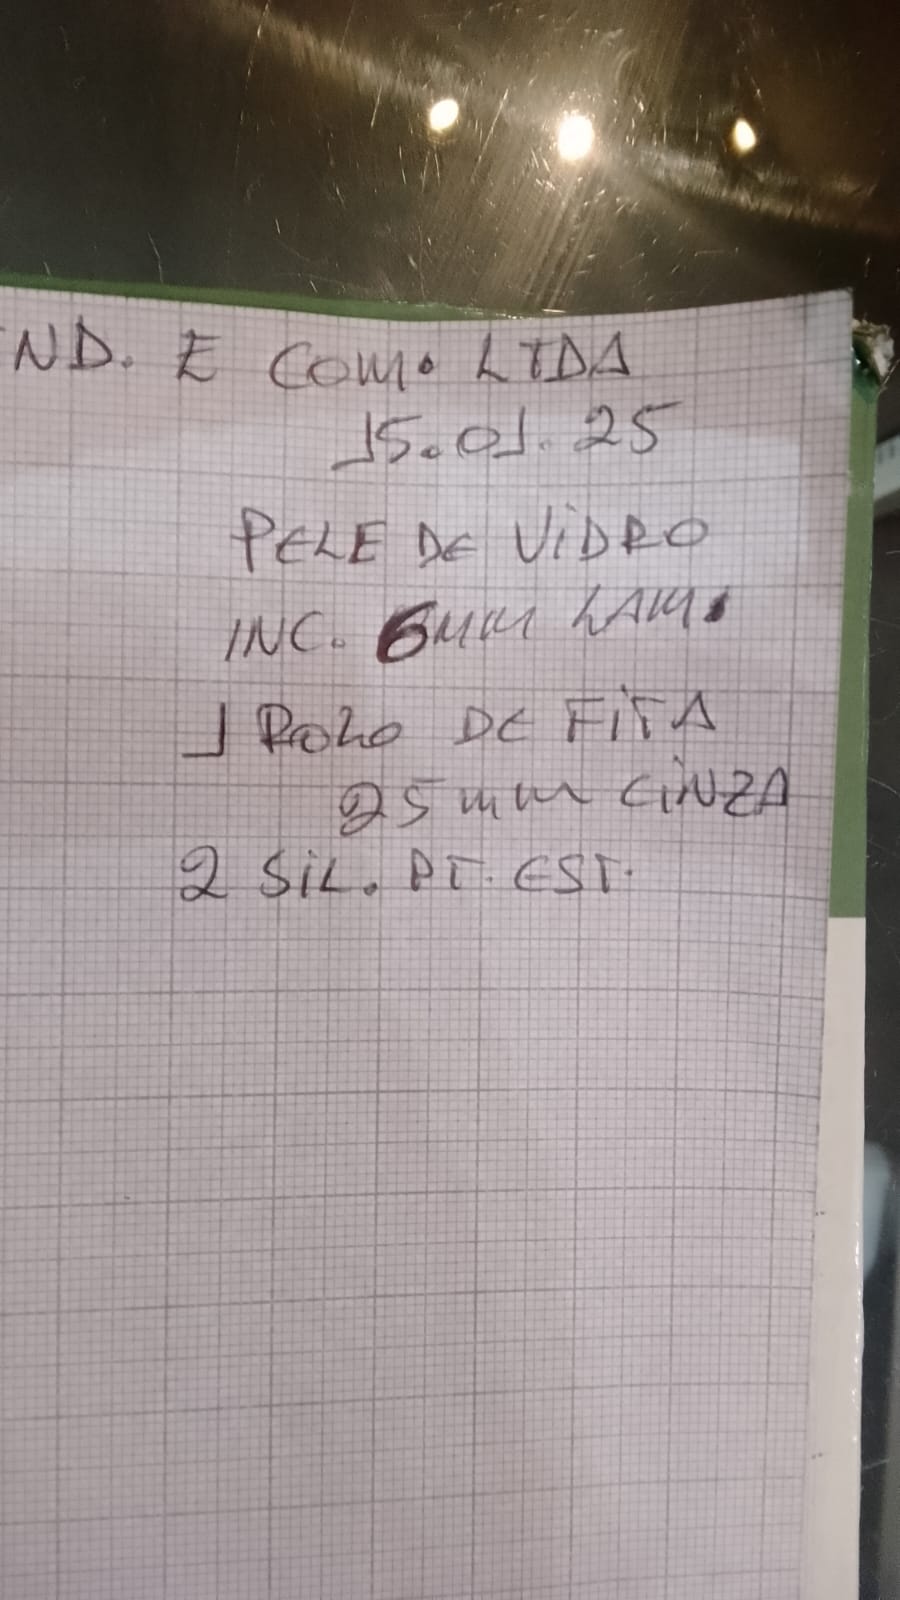 IND. E COM. LTDA
15.01.25
PELE DE VIDRO
INC. 6MM LAM.
1 ROLO DE FITA
25mm CINZA
2 SIL. PT. EST.